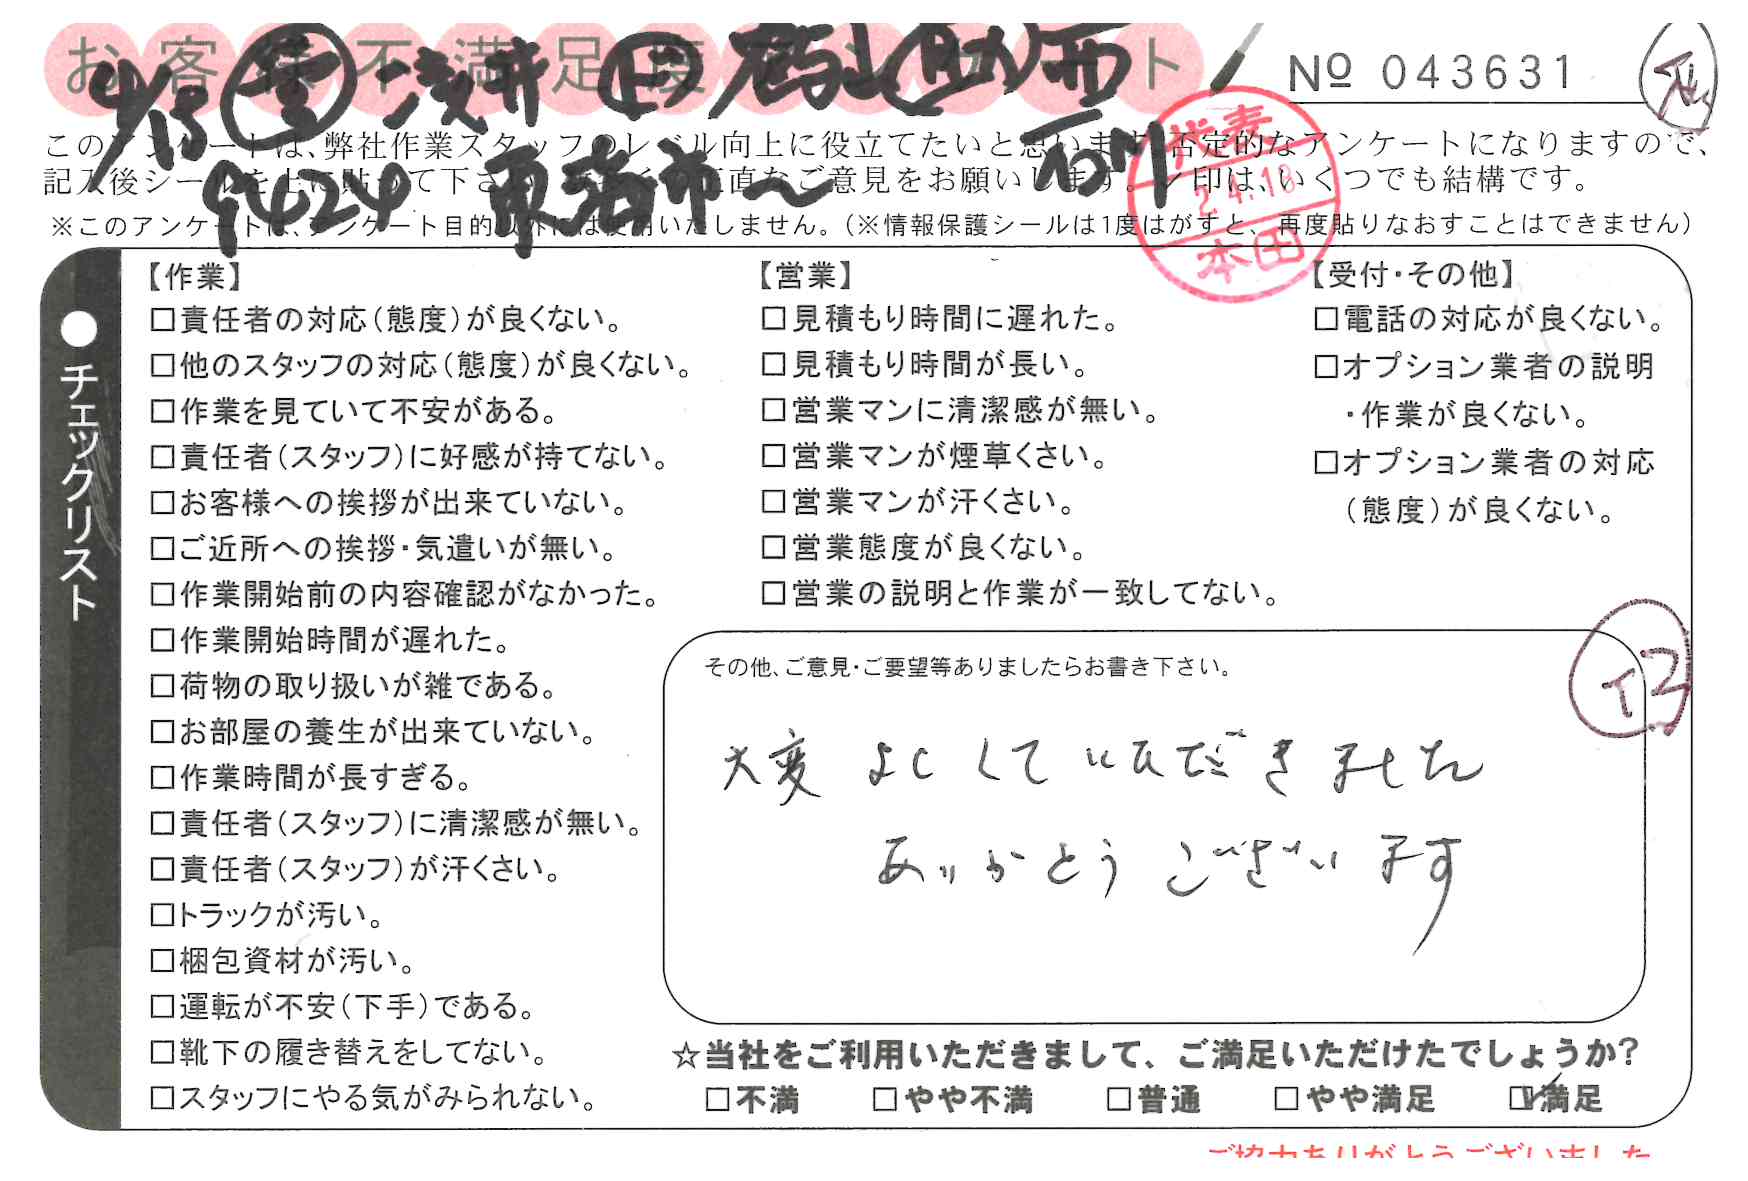 お客様不満足度アンケート
№ 043631
4/13 営 浅井
9424 東海市〜
このアンケートは、弊社作業スタッフのレベル向上に役立てたいと思います。否定的なアンケートになりますので、
記入後シールを上に貼って下さい。お客様の正直なご意見をお願いします。✓印は、いくつでも結構です。
※このアンケートは、アンケート目的以外には使用いたしません。(※情報保護シールは1度はがすと、再度貼りなおすことはできません)
代表
2.4.18
本田
●チェックリスト
【作業】
□責任者の対応(態度)が良くない。
□他のスタッフの対応(態度)が良くない。
□作業を見ていて不安がある。
□責任者(スタッフ)に好感が持てない。
□お客様への挨拶が出来ていない。
□ご近所への挨拶・気遣いが無い。
□作業開始前の内容確認がなかった。
□作業開始時間が遅れた。
□荷物の取り扱いが雑である。
□お部屋の養生が出来ていない。
□作業時間が長すぎる。
□責任者(スタッフ)に清潔感が無い。
□責任者(スタッフ)が汗くさい。
□トラックが汚い。
□梱包資材が汚い。
□運転が不安(下手)である。
□靴下の履き替えをしてない。
□スタッフにやる気がみられない。
【営業】
□見積もり時間に遅れた。
□見積もり時間が長い。
□営業マンに清潔感が無い。
□営業マンが煙草くさい。
□営業マンが汗くさい。
□営業態度が良くない。
□営業の説明と作業が一致してない。
【受付・その他】
□電話の対応が良くない。
□オプション業者の説明
・作業が良くない。
□オプション業者の対応
(態度)が良くない。
その他、ご意見・ご要望等ありましたらお書き下さい。
大変よくしていただきました
ありがとうございます
☆当社をご利用いただきまして、ご満足いただけたでしょうか?
□不満 □やや不満 □普通 □やや満足 ☑満足
ご協力ありがとうございました